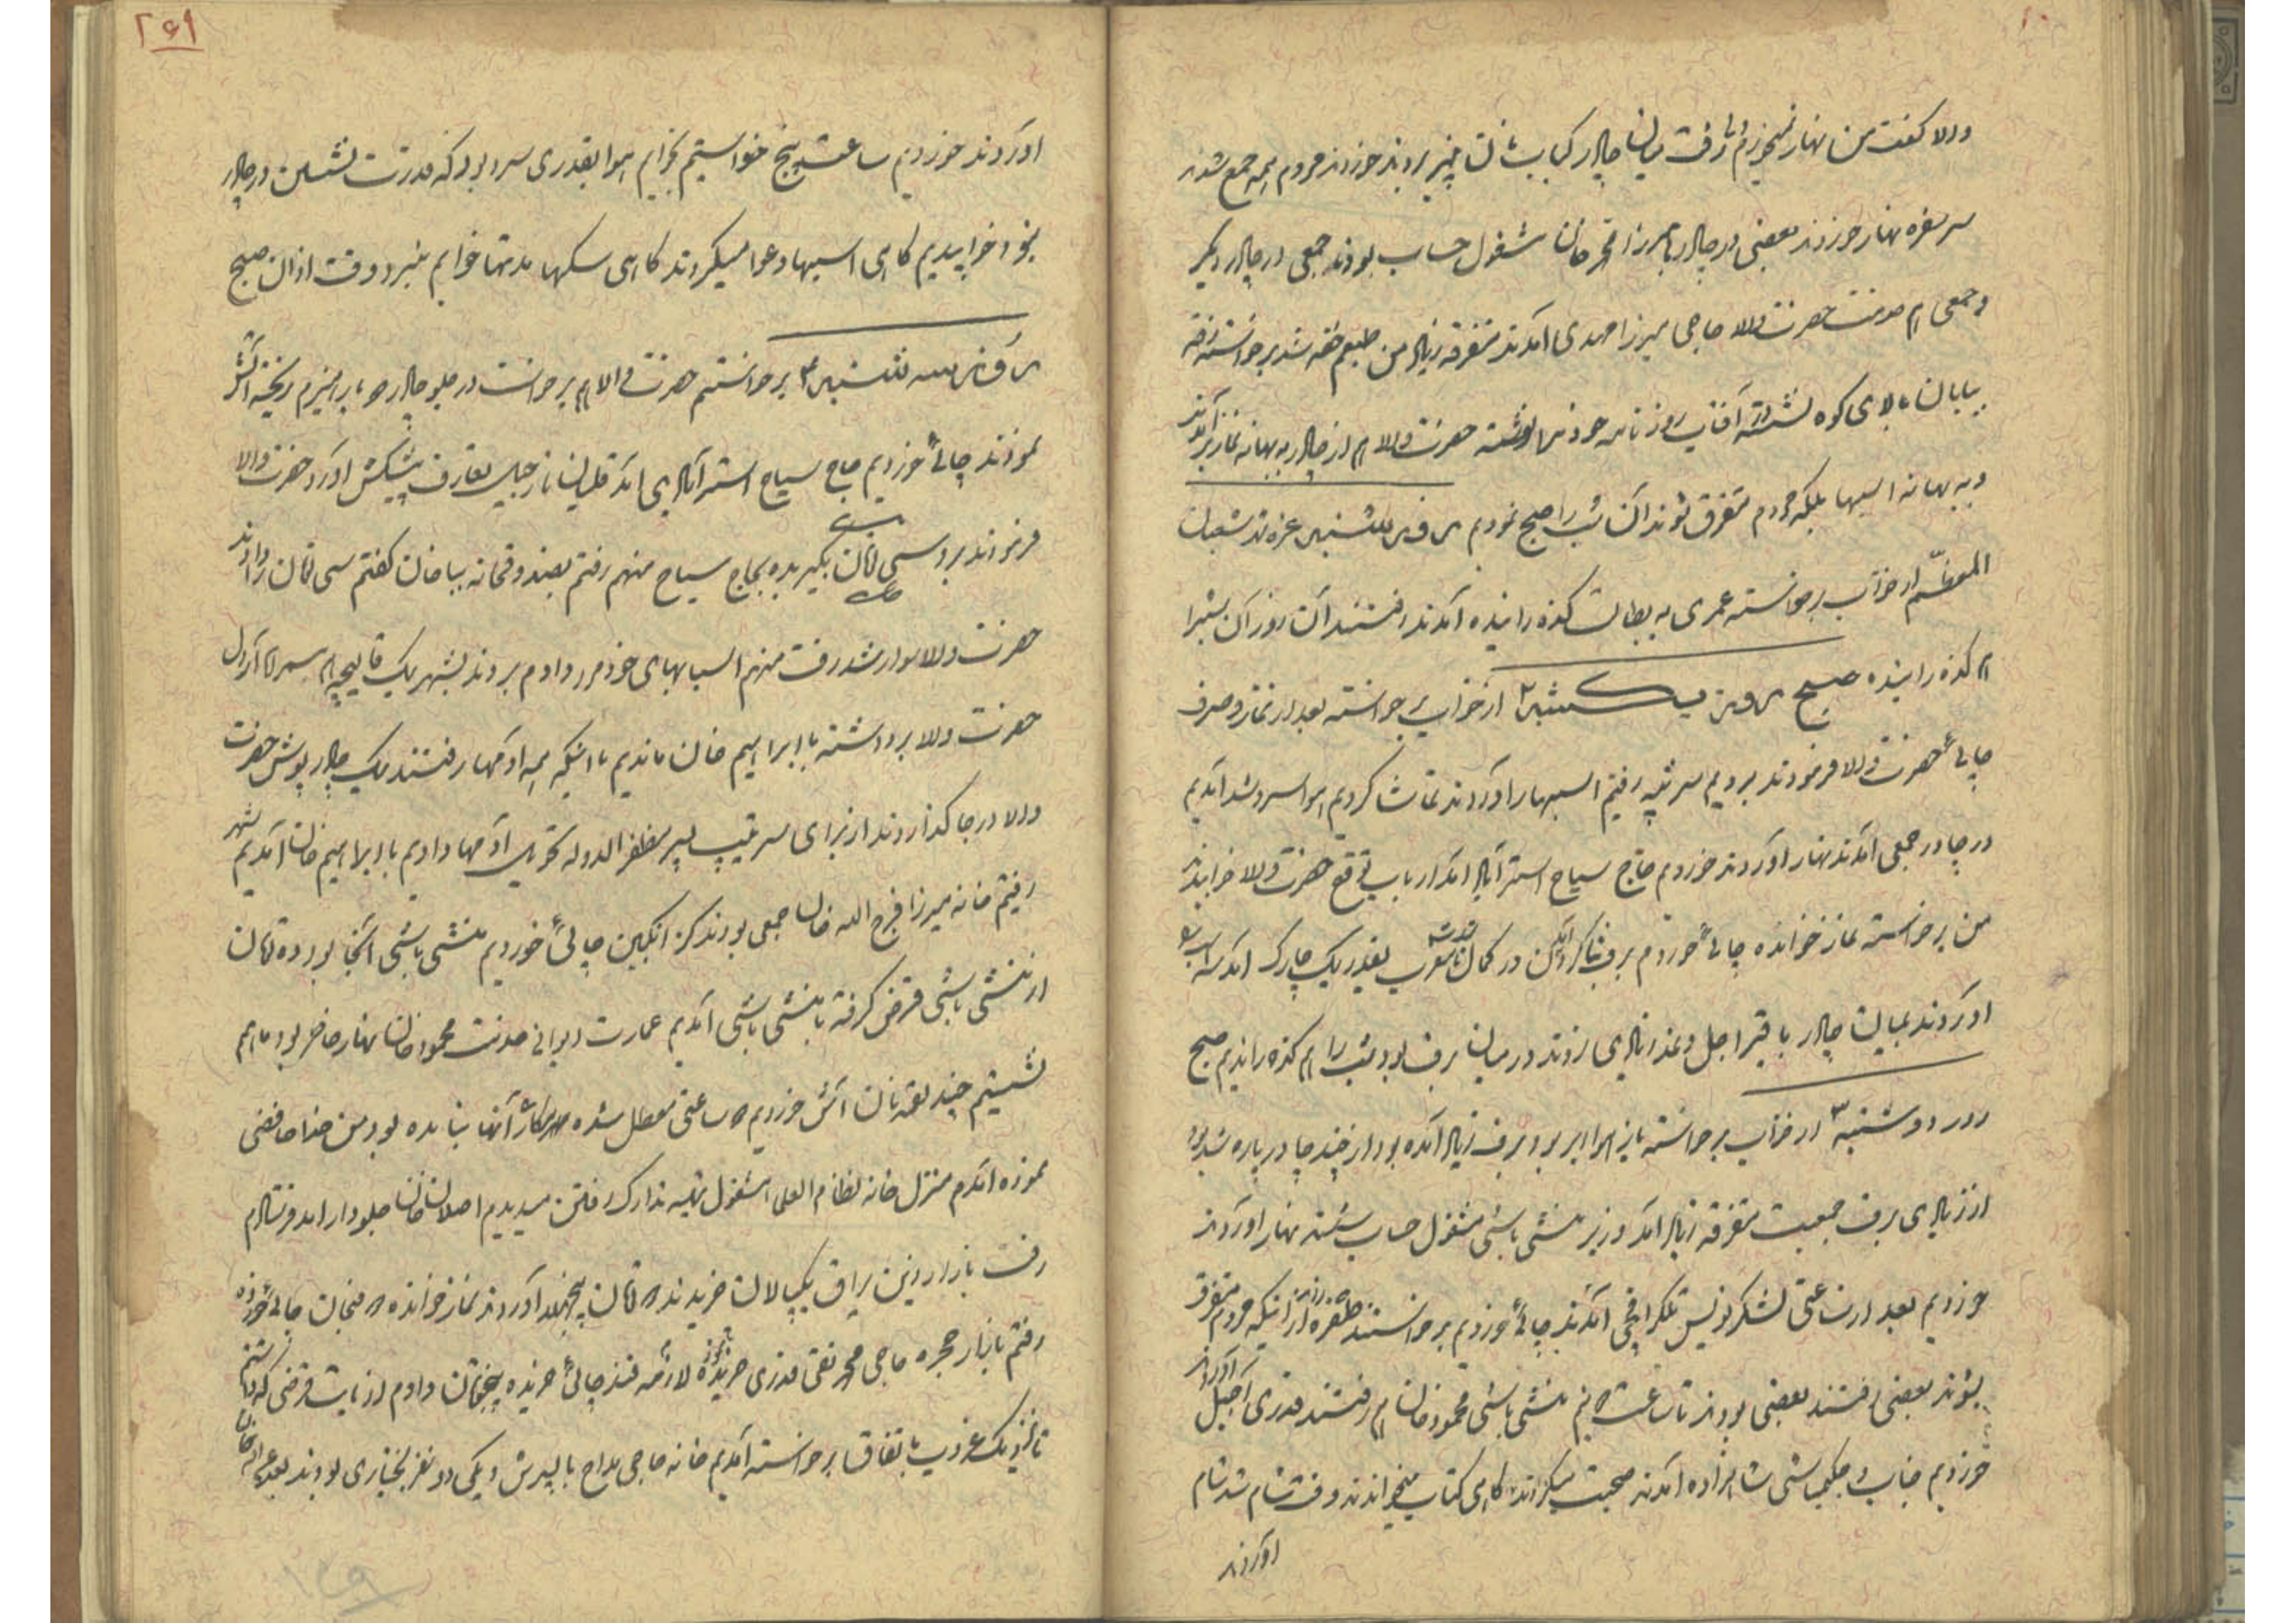 والا گفت من نهار نمیخورم ولی رفت میان چادر کباب نان پنیر بردند خوردند مردم همه جمع شدند
سر سفره نهار خوردند بعضی در چادر با میرزا محمد خان مشغول حساب بودند جمعی در چادر دیگر
و جمعی هم خدمت حضرت والا حاجی میرزا مهدی آمدند متفرقه زیاد من طبعم خفه شد برخواسته رفته
بیابان بالای کوه نشسته آفتاب روزنامه خود نوشته حضرت والا هم از چادر به بهانه نماز برآمدند
و به بهانه اسبها بلکه مردم متفرق شوند آن شب را صبح نمودیم روز شنبه غره شهر شعبان
المعظم از خواب برخواسته عمری به بطالت گذرانیده آمدند رفتند آن روز آن شب را
هم گذرانیده صبح روز یکشنبه ۲ از خواب برخواسته بعد از نماز و صرف
چائی حضرت والا فرمودند برویم سر تپه رفتیم اسبها را آوردند تماشا کردیم هوا سرد شد آمدیم
در چادر جمعی آمدند نهار آوردند خوردیم حاج سیاح استرآبادی آمد حضرت والا خوابیدند
من برخواسته نماز خوانده چائی خوردم برف بنا کرد آمدن در کمال بقدر یک چارک آمد
آوردند میان چادر باقر اجل و نمد زیادی زدند در میان برف بود شب را هم گذراندیم صبح
روز دوشنبه ۳ از خواب برخواسته باز هوا ابر بود برف زیاد آمده بود از چند چادر پاره شده بود
از زیادی برف جمعیت متفرقه زیاد آمد وزیر منشی باشی مشغول حساب شدند نهار آوردند
خوردیم بعد از ساعتی لشکرنویس تلگرافچی آمدند چائی خوردیم برخواستند از اینکه مردم متفرق
بشوند بعضی رفتند بعضی بودند تا ساعت ۵ نیم منشی باشی محمود خان هم رفتند قدری آجیل آوردند
خوردیم جناب حکیمباشی شاهزاده آمدند صحبت میکردند گاهی کتاب میخواندند وقت شام شد شام
آوردند
۲۶۹
آوردند خوردیم ساعت پنج خواستیم بخوابیم هوا بقدری سرد بود که قدرت نشستن در چادر
نبود خوابیدیم گاهی اسبها دعوا میکردند گاهی سگها مدتها خوابم نبرد وقت اذان صبح
روز سه شنبه ۴ برخواستم حضرت والا هم برخواست در جلو چادر بار هیزم ریخته آتش
نمودند چائی خوردیم حاج سیاح استرآبادی آمد تعارف پیشکش آورد حضرت والا
فرمودند برو سی تومان بگیر بده بحاج سیاح منهم رفتم بصندوقخانه ببا خان گفتم سی تومان را دادند
حضرت والا سوار شد رفت منهم اسبابهای خودم را دادم بردند بشهر یک قالیچه هم
حضرت والا برداشته با ابراهیم خان ماندیم تا اینکه همه آدمها رفتند یک چادر پوش حضرت
والا در جا گذاردند از برای سرتیپ پسر مظفرالدوله تحویل آدمها دادیم با ابراهیم خان آمدیم بشهر
رفتم خانه میرزا فرج الله خان جمعی بودند گز انگبین چائی خوردیم منشی باشی آنجا بود ده تومان
از منشی باشی قرض گرفته با منشی باشی آمدیم عمارت دیوانی خدمت محمود خان نهار حاضر بود ما هم
نشستیم چند لقمه نان آش خوردیم ۵ ساعتی معطل شده آنها نیامده بود من خدا حافظی
نموده آمدم منزل خانه نظام العلما مشغول تهیه تدارک رفتن میدیدم اصلان خان جلودار آمد فرستادم
رفت بازار زین یراق یک پالان خریدند ۵ تومان آوردند نماز خوانده ۵ فنجان چائی خورده
رفتم بازار حجره حاجی محمد تقی قدری خریده لازمه قند چائی خریده پنج تومان دادم از بابت قرضی که داشتم
تا نزدیک غروب باتفاق برخواسته آمدیم خانه حاجی مداح با پسرش و یکی دو نفر بختیاری بودند